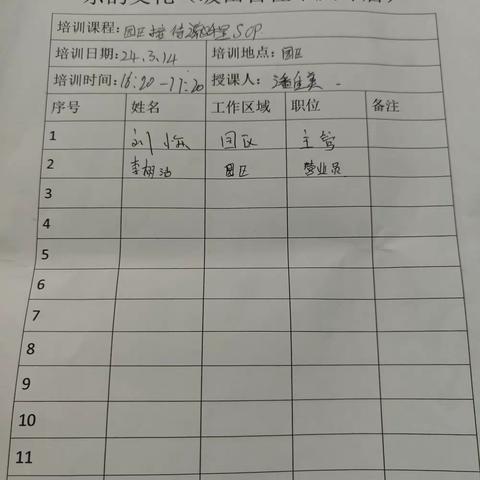 培训课程:园区接待流程SOP
培训日期:24.3.14 培训地点:园区
培训时间:16:20-17:20 授课人:
序号 姓名 工作区域 职位 备注
1 刘 园区 主管
2 李 园区 营业员
3
4
5
6
7
8
9
10
11